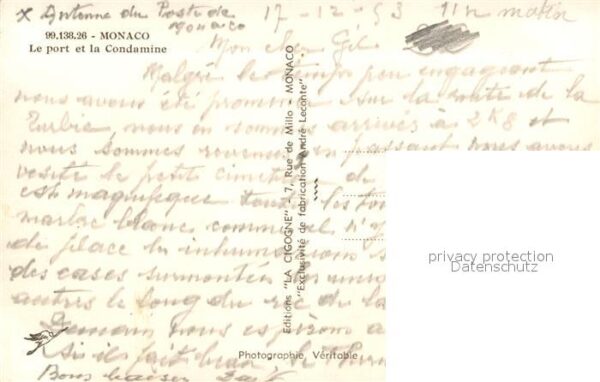 x Antenne du Poste de Monaco
17-12-53 11h matin
99.138.26 - MONACO
Le port et la Condamine
Mon cher Gil
Malgré le temps peu engageant
nous avons été promener sur la route de la
Turbie, nous en sommes arrivés à 2 K 8 et
nous sommes revenus en passant nous avons
visité le petit cimetière de
est magnifique tous les
marbre blanc
de place les inhumations
des cases surmontées les unes
autres le long du roc de la
Demain nous espérons
si il fait beau, le
Bons baisers
Editions "LA CIGOGNE" - 7, Rue de Millo - MONACO
"Exclusivité de fabrication André Leconte"
Photographie Véritable
privacy protection
Datenschutz